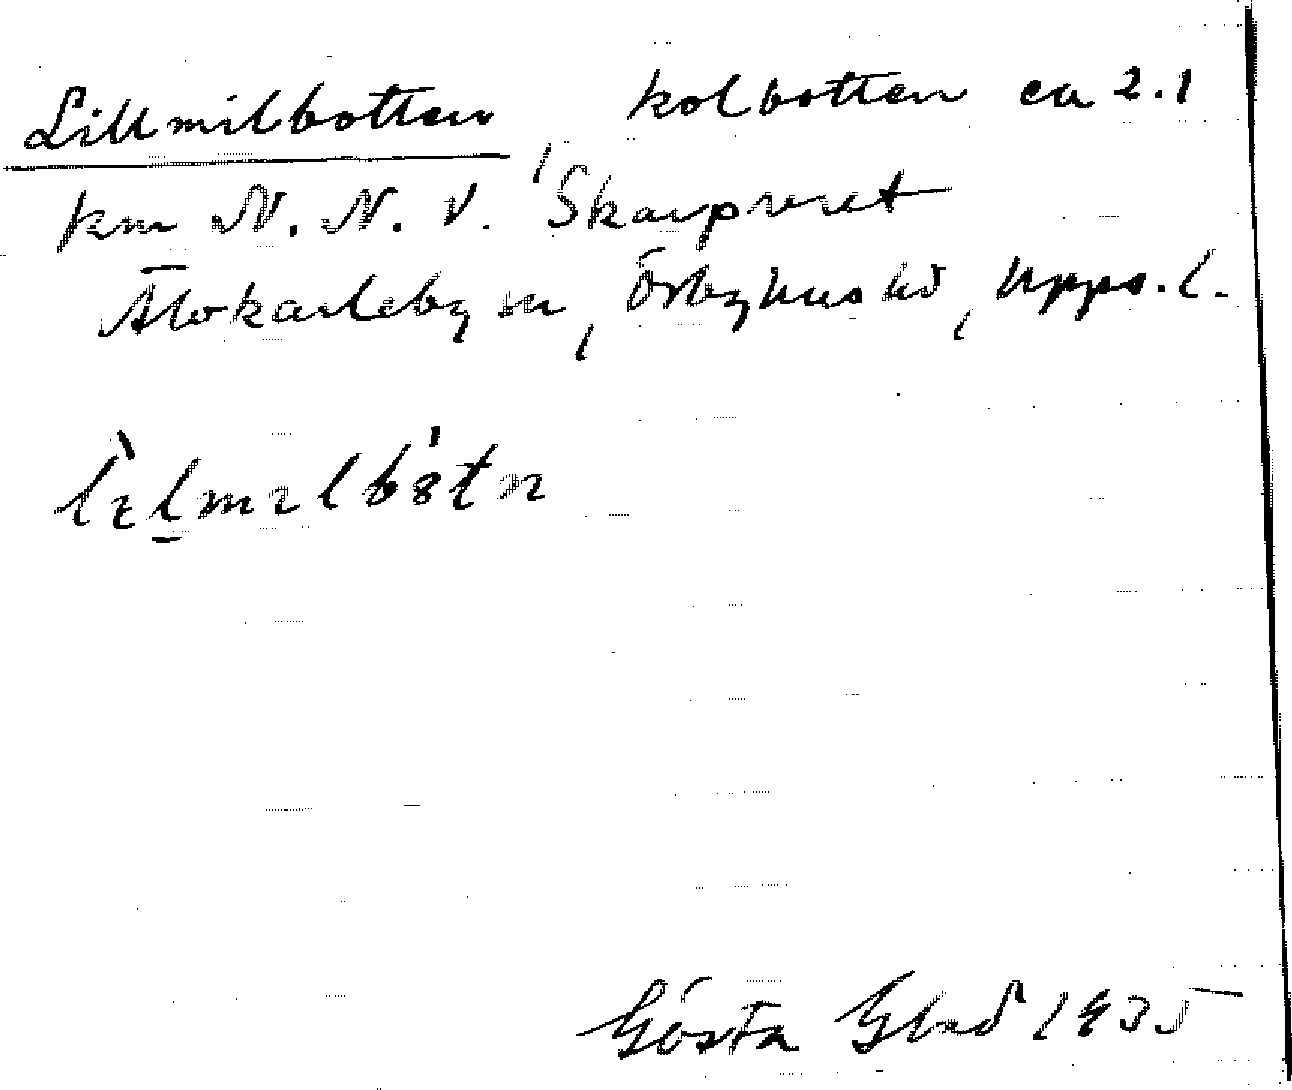 Lillmilbotten, kolbotten ca 2.1
km N. N. V. Skarpretet
Älvkarleby sn, Örbyhus hd, Upps. l.
Gösta Glad 1935